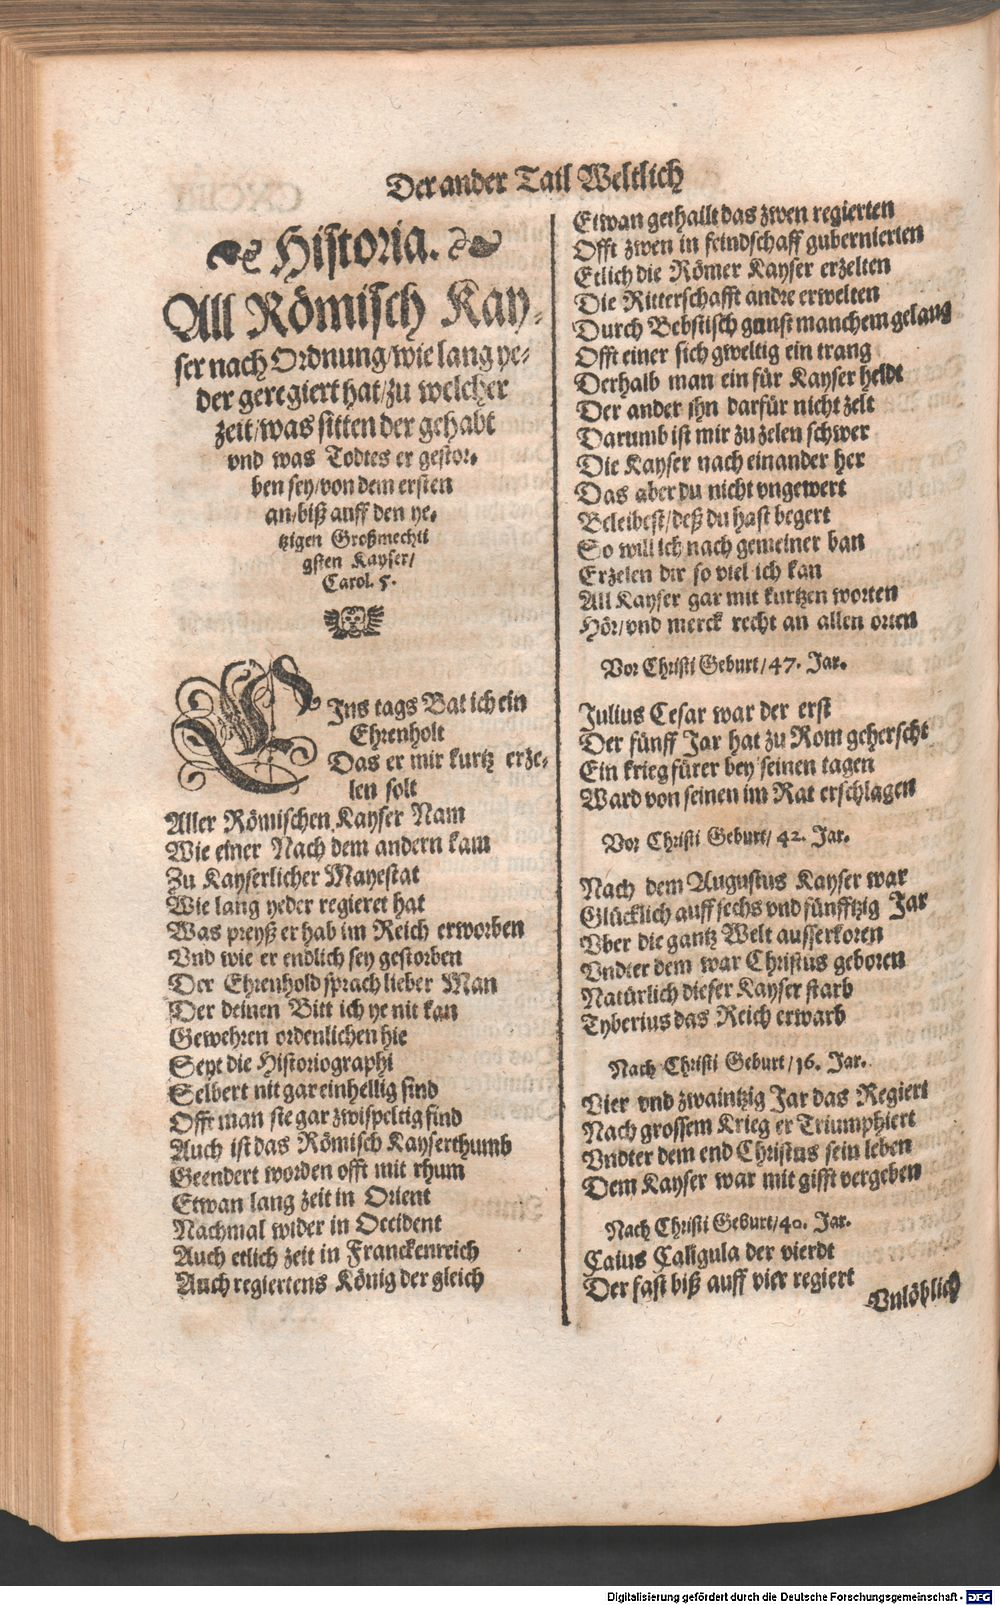 Der ander Tail Weltlich
Historia.
All Römisch Kay-
ser nach Ordnung/wie lang ye-
der geregiert hat/zu welcher
zeit/was sitten der gehabt
vnd was Todtes er gestor-
ben sey/von dem ersten
an/biß auff den ye-
tzigen Großmechti
gsten Kayser/
Carol. 5.
EIns tags Bat ich ein
Ehrenholt
Das er mir kurtz erze-
len solt
Aller Römischen Kayser Nam
Wie einer Nach dem andern kam
Zu Kayserlicher Mayestat
Wie lang yeder regieret hat
Was preyß er hab im Reich erworben
Vnd wie er endlich sey gestorben
Der Ehrenhold sprach lieber Man
Der deinen Bitt ich ye nit kan
Gewehren ordenlichen hie
Seyt die Historiographi
Selbert nit gar einhellig sind
Offt man sie gar zwispeltig find
Auch ist das Römisch Kayserthumb
Geendert worden offt mit rhum
Etwan lang zeit in Orient
Nachmal wider in Occident
Auch etlich zeit in Franckenreich
Auch regiertens König der gleich
Etwan gethallt das zwen regierten
Offt zwen in feindschaff gubernierten
Etlich die Römer Kayser erzelten
Die Ritterschafft andre erwelten
Durch Bebstisch gunst manchem gelang
Offt einer sich gweltig ein trang
Derhalb man ein für Kayser heldt
Der ander ihn darfür nicht zelt
Darumb ist mir zu zelen schwer
Die Kayser nach einander her
Das aber du nicht vngewert
Beleibest/deß du hast begert
So will ich nach gemeiner ban
Erzelen dir so viel ich kan
All Kayser gar mit kurtzen worten
Hör/vnd merck recht an allen orten
Vor Christi Geburt/47. Jar.
Julius Cesar war der erst
Der fünff Jar hat zu Rom geherscht
Ein krieg fürer bey seinen tagen
Ward von seinen im Rat erschlagen
Vor Christi Geburt/42. Jar.
Nach dem Augustus Kayser war
Glücklich auff sechs vnd fünfftzig Jar
Vber die gantz Welt ausserkoren
Vndter dem war Christus geboren
Natürlich dieser Kayser starb
Tyberius das Reich erwarb
Nach Christi Geburt/16. Jar.
Vier vnd zwaintzig Jar das Regiert
Nach grossem Krieg er Triumphiert
Vndter dem end Christus sein leben
Dem Kayser war mit gifft vergeben
Nach Christi Geburt/40. Jar.
Caius Caligula der vierdt
Der fast biß auff vier regiert
Vnlöblich
Digitalisierung gefördert durch die Deutsche Forschungsgemeinschaft - DFG